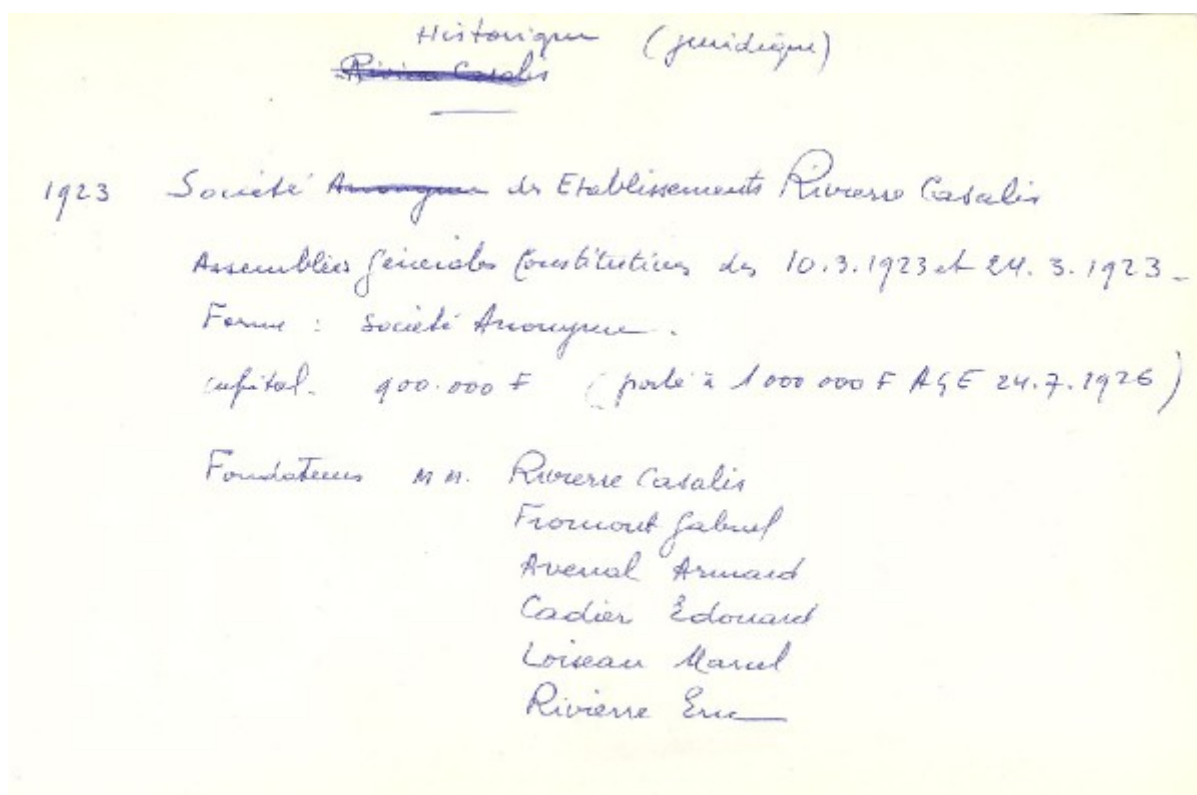 Historique (juridique)
Rivierre Casalis
1923 Société Anonyme des Etablissements Rivierre Casalis
Assemblées Générales Constitutives des 10.3.1923 et 24.3.1923 -
Forme : Société Anonyme.
Capital. 900.000 F (porté à 1 000 000 F AGE 24.7.1926)
Fondateurs MM. Rivierre Casalis
Fromont Gabriel
Avenal Armand
Cadier Edouard
Loiseau Marcel
Rivierre Eric